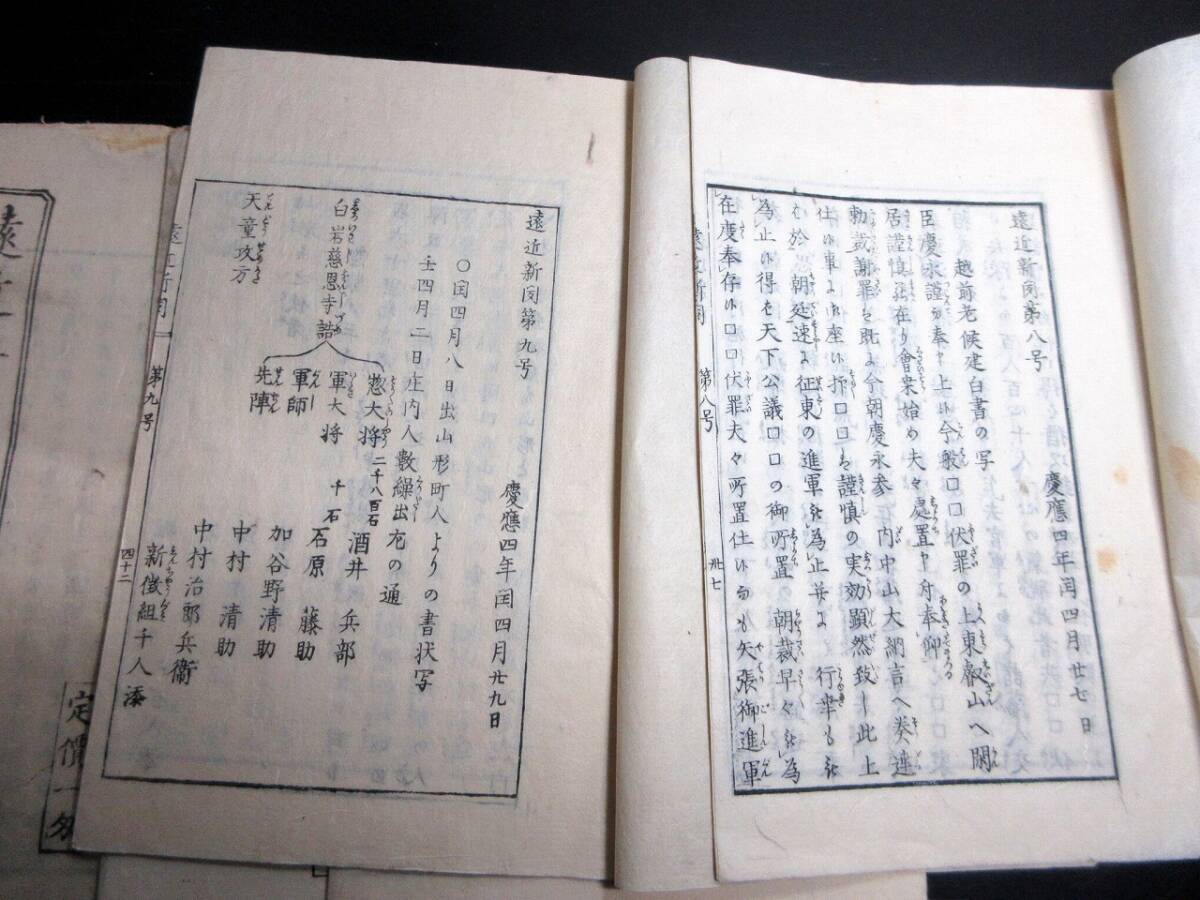 遠近新聞第八号
慶應四年閏四月廿七日
越前老候建白書の写
臣慶永謹而奉申上候今般口口伏罪の上東叡山へ閑
居謹慎罷在り會衆始め夫々處置申付奉仰
勅裁謝罪を既よ今朝慶永参 内中山大納言へ奏達
仕候事よ御座候折口口も謹慎の実効顕然致し此上
於 朝廷速よ征東の進軍を為止并よ 行幸も
為止得を天下公議口口の御所置 朝裁早々を為
在度奉存候口口伏罪夫々所置仕候而も矢張御進軍
遠近新聞 第八号 卅七
遠近新聞第九号
慶應四年閏四月廿九日
〇閏四月八日出山形町人よりの書状写
壬四月二日庄内人数繰出左の通
惣大将 二千八百石 酒井 兵部
軍大将 千石 石原 藤助
白岩慈恩寺詰
軍師 加谷野清助
先陣 中村 清助
中村治郎兵衛
天童攻方
新徴組千人添
遠近新聞 第九号 四十二
定價一匁